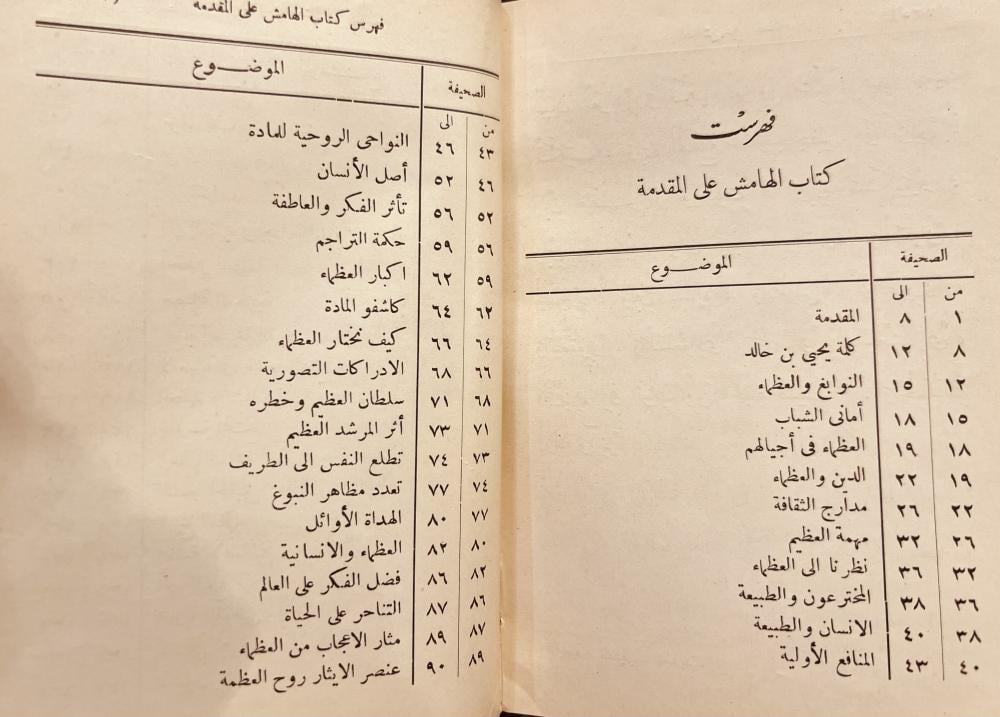 فهرست
كتاب الهامش على المقدمة
الصحيفة الموضوع
من الى
١ ٨ المقدمة
٨ ١٢ كلمة يحيي بن خالد
١٢ ١٥ النوابغ والعظماء
١٥ ١٨ أمانى الشباب
١٨ ١٩ العظماء فى أجيالهم
١٩ ٢٢ الدين والعظماء
٢٢ ٢٦ مدارج الثقافة
٢٦ ٣٢ مهمة العظيم
٣٢ ٣٦ نظرنا الى العظماء
٣٦ ٣٨ المخترعون والطبيعة
٣٨ ٤٠ الانسان والطبيعة
٤٠ ٤٣ المنافع الأولية
فهرس كتاب الهامش على المقدمة
الصحيفة الموضوع
من الى
٤٣ ٤٦ النواحى الروحية للمادة
٤٦ ٥٢ أصل الأنسان
٥٢ ٥٦ تأثر الفكر والعاطفة
٥٦ ٥٩ حكمة التراجم
٥٩ ٦٢ اكبار العظماء
٦٢ ٦٤ كاشفو المادة
٦٤ ٦٦ كيف نختار العظماء
٦٦ ٦٨ الادراكات التصورية
٦٨ ٧١ سلطان العظيم وخطره
٧١ ٧٣ أثر المرشد العظيم
٧٣ ٧٤ تطلع النفس الى الطريف
٧٤ ٧٧ تعدد مظاهر النبوغ
٧٧ ٨٠ الهداة الأوائل
٨٠ ٨٢ العظماء والانسانية
٨٢ ٨٦ فضل الفكر على العالم
٨٦ ٨٧ التناحر على الحياة
٨٧ ٨٩ مثار الاعجاب من العظماء
٨٩ ٩٠ عنصر الايثار روح العظمة